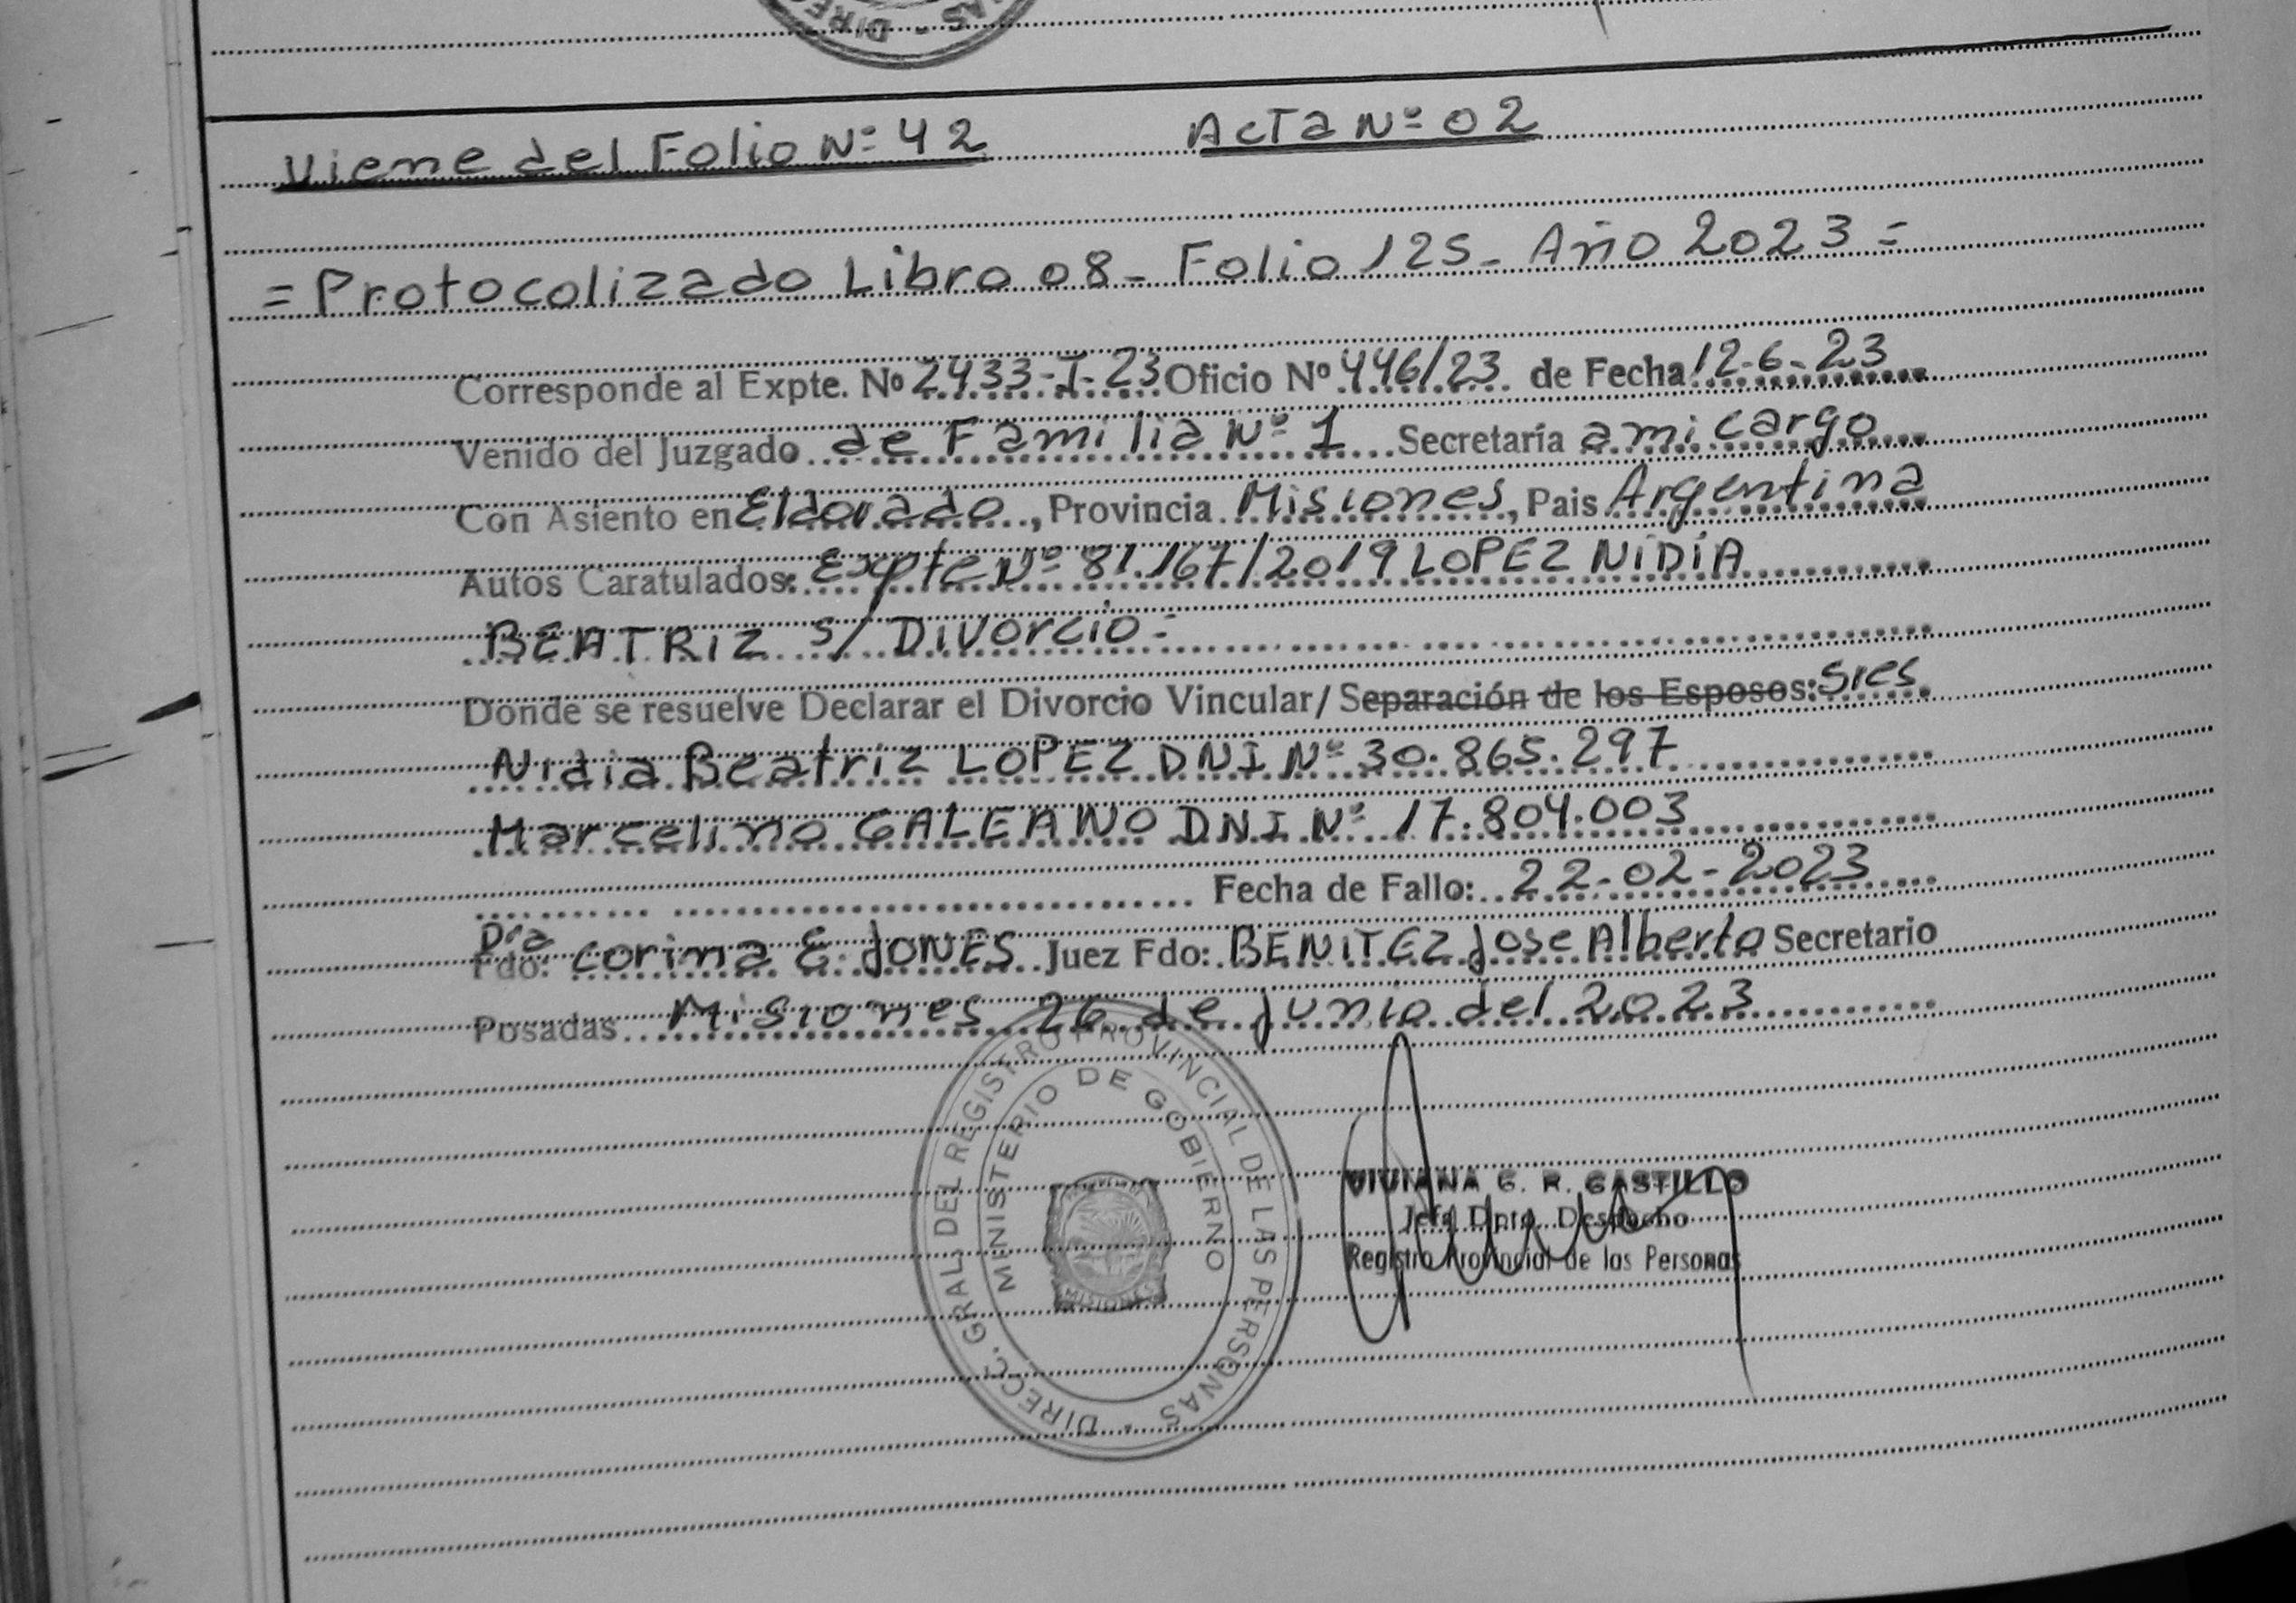 Viene del Folio Nº 42 Acta Nº 02
= Protocolizado Libro 08 - Folio 125 - Año 2023 =
Corresponde al Expte. Nº 2433-I-23 Oficio Nº 446/23 de Fecha 12-6-23
Venido del Juzgado de Familia Nº 1 Secretaría a mi cargo
Con Asiento en Eldorado, Provincia Misiones, Pais Argentina
Autos Caratulados: Expte Nº 81.167/2019 LOPEZ NIDIA
BEATRIZ s/ Divorcio.-
Donde se resuelve Declarar el Divorcio Vincular/ Separación de los Esposos: Sres
Nidia Beatriz LOPEZ DNI Nº 30.865.297
Marcelino GALEANO DNI Nº 17.804.003
Fecha de Fallo: 22-02-2023
Dra
Fdo: Corina E. JONES Juez Fdo: BENITEZ Jose Alberto Secretario
Posadas Misiones 26 de junio del 2023
DIRECC. GRAL. DEL REGISTRO PROVINCIAL DE LAS PERSONAS
MINISTERIO DE GOBIERNO
MISIONES
VIVIANA G. R. CASTILLO
Jefa Dpto. Despacho
Registro Provincial de las Personas